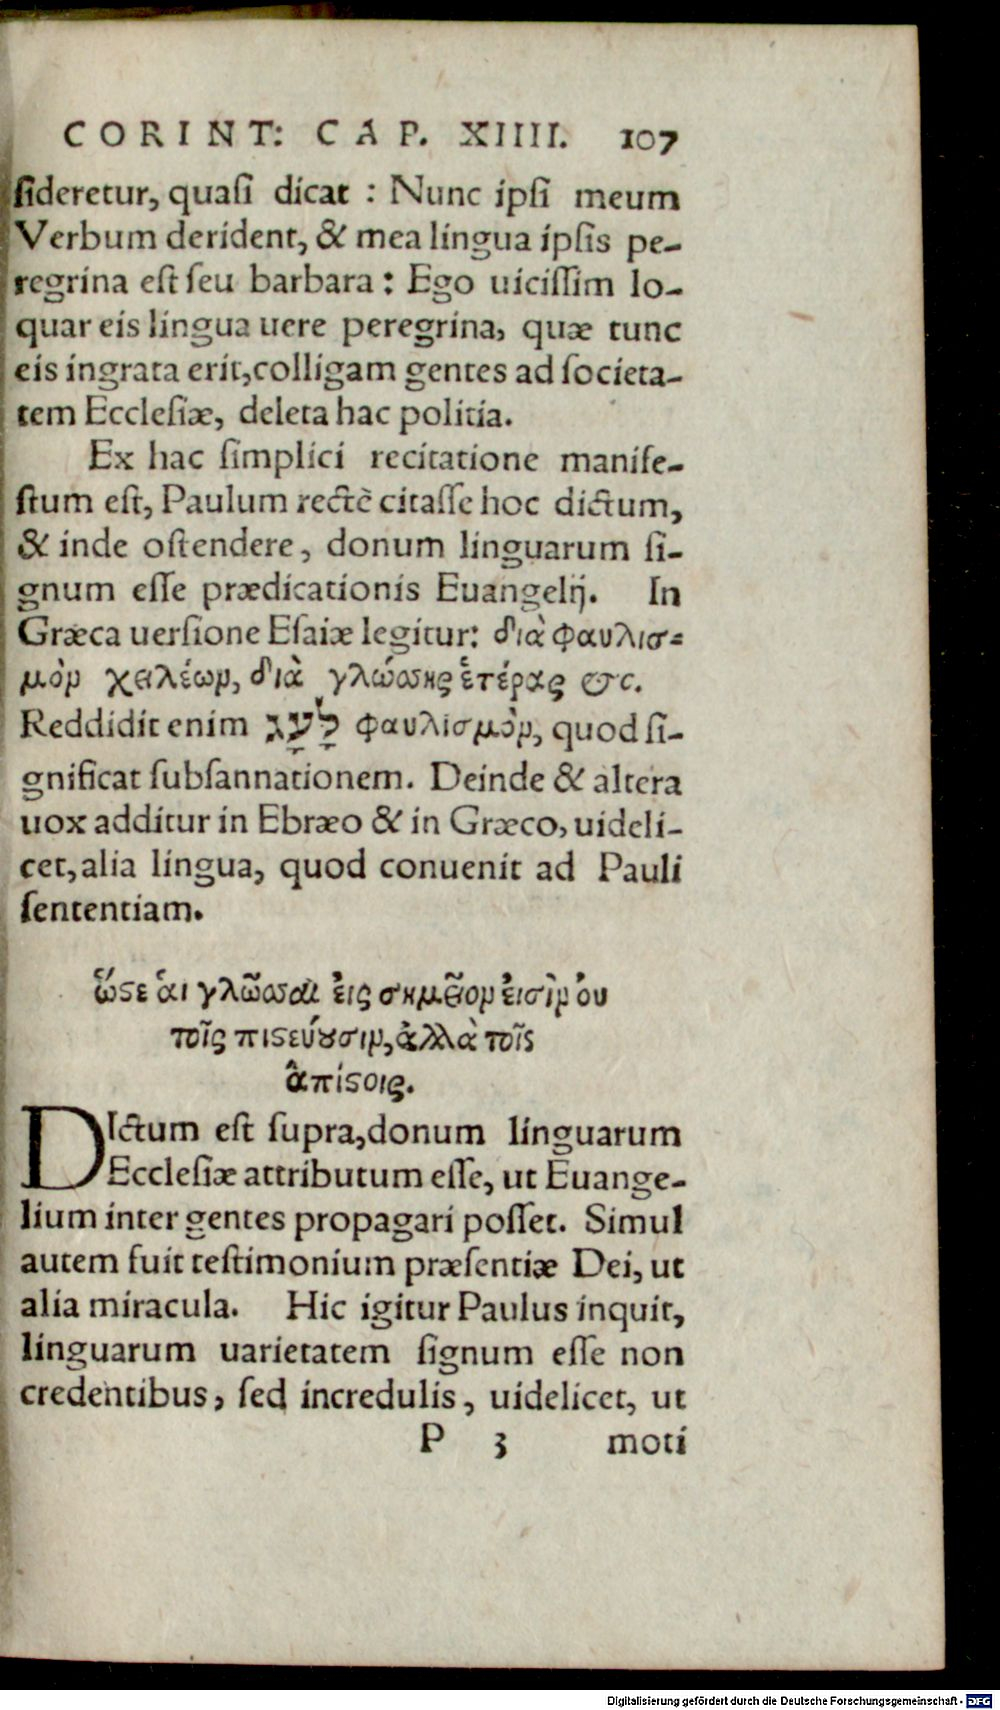 CORINT: CAP. XIIII. 107
sideretur, quasi dicat : Nunc ipsi meum
Verbum derident, & mea lingua ipsis pe-
regrina est seu barbara : Ego uicissim lo-
quar eis lingua uere peregrina, quæ tunc
eis ingrata erit, colligam gentes ad societa-
tem Ecclesiæ, deleta hac politia.
Ex hac simplici recitatione manife-
stum est, Paulum rectè citasse hoc dictum,
& inde ostendere, donum linguarum si-
gnum esse prædicationis Euangelij. In
Græca uersione Esaiæ legitur: διὰ φαυλισ=
μὸν χειλέων, διὰ γλώσσης ἑτέρας &c.
Reddidit enim לָעַג φαυλισμὸν, quod si-
gnificat subsannationem. Deinde & altera
uox additur in Ebræo & in Græco, uideli-
cet, alia lingua, quod conuenit ad Pauli
sententiam.
ὥστε ἁι γλῶσσαι ἐις σημεῖον ἐισὶν ὀυ
τοῖς πιστεύουσιν, ἀλλὰ τοῖς
ἀπίστοις.
DIctum est supra, donum linguarum
Ecclesiæ attributum esse, ut Euange-
lium inter gentes propagari posset. Simul
autem fuit testimonium præsentiæ Dei, ut
alia miracula. Hic igitur Paulus inquit,
linguarum uarietatem signum esse non
credentibus, sed incredulis, uidelicet, ut
P 3 moti
Digitalisierung gefördert durch die Deutsche Forschungsgemeinschaft - DFG